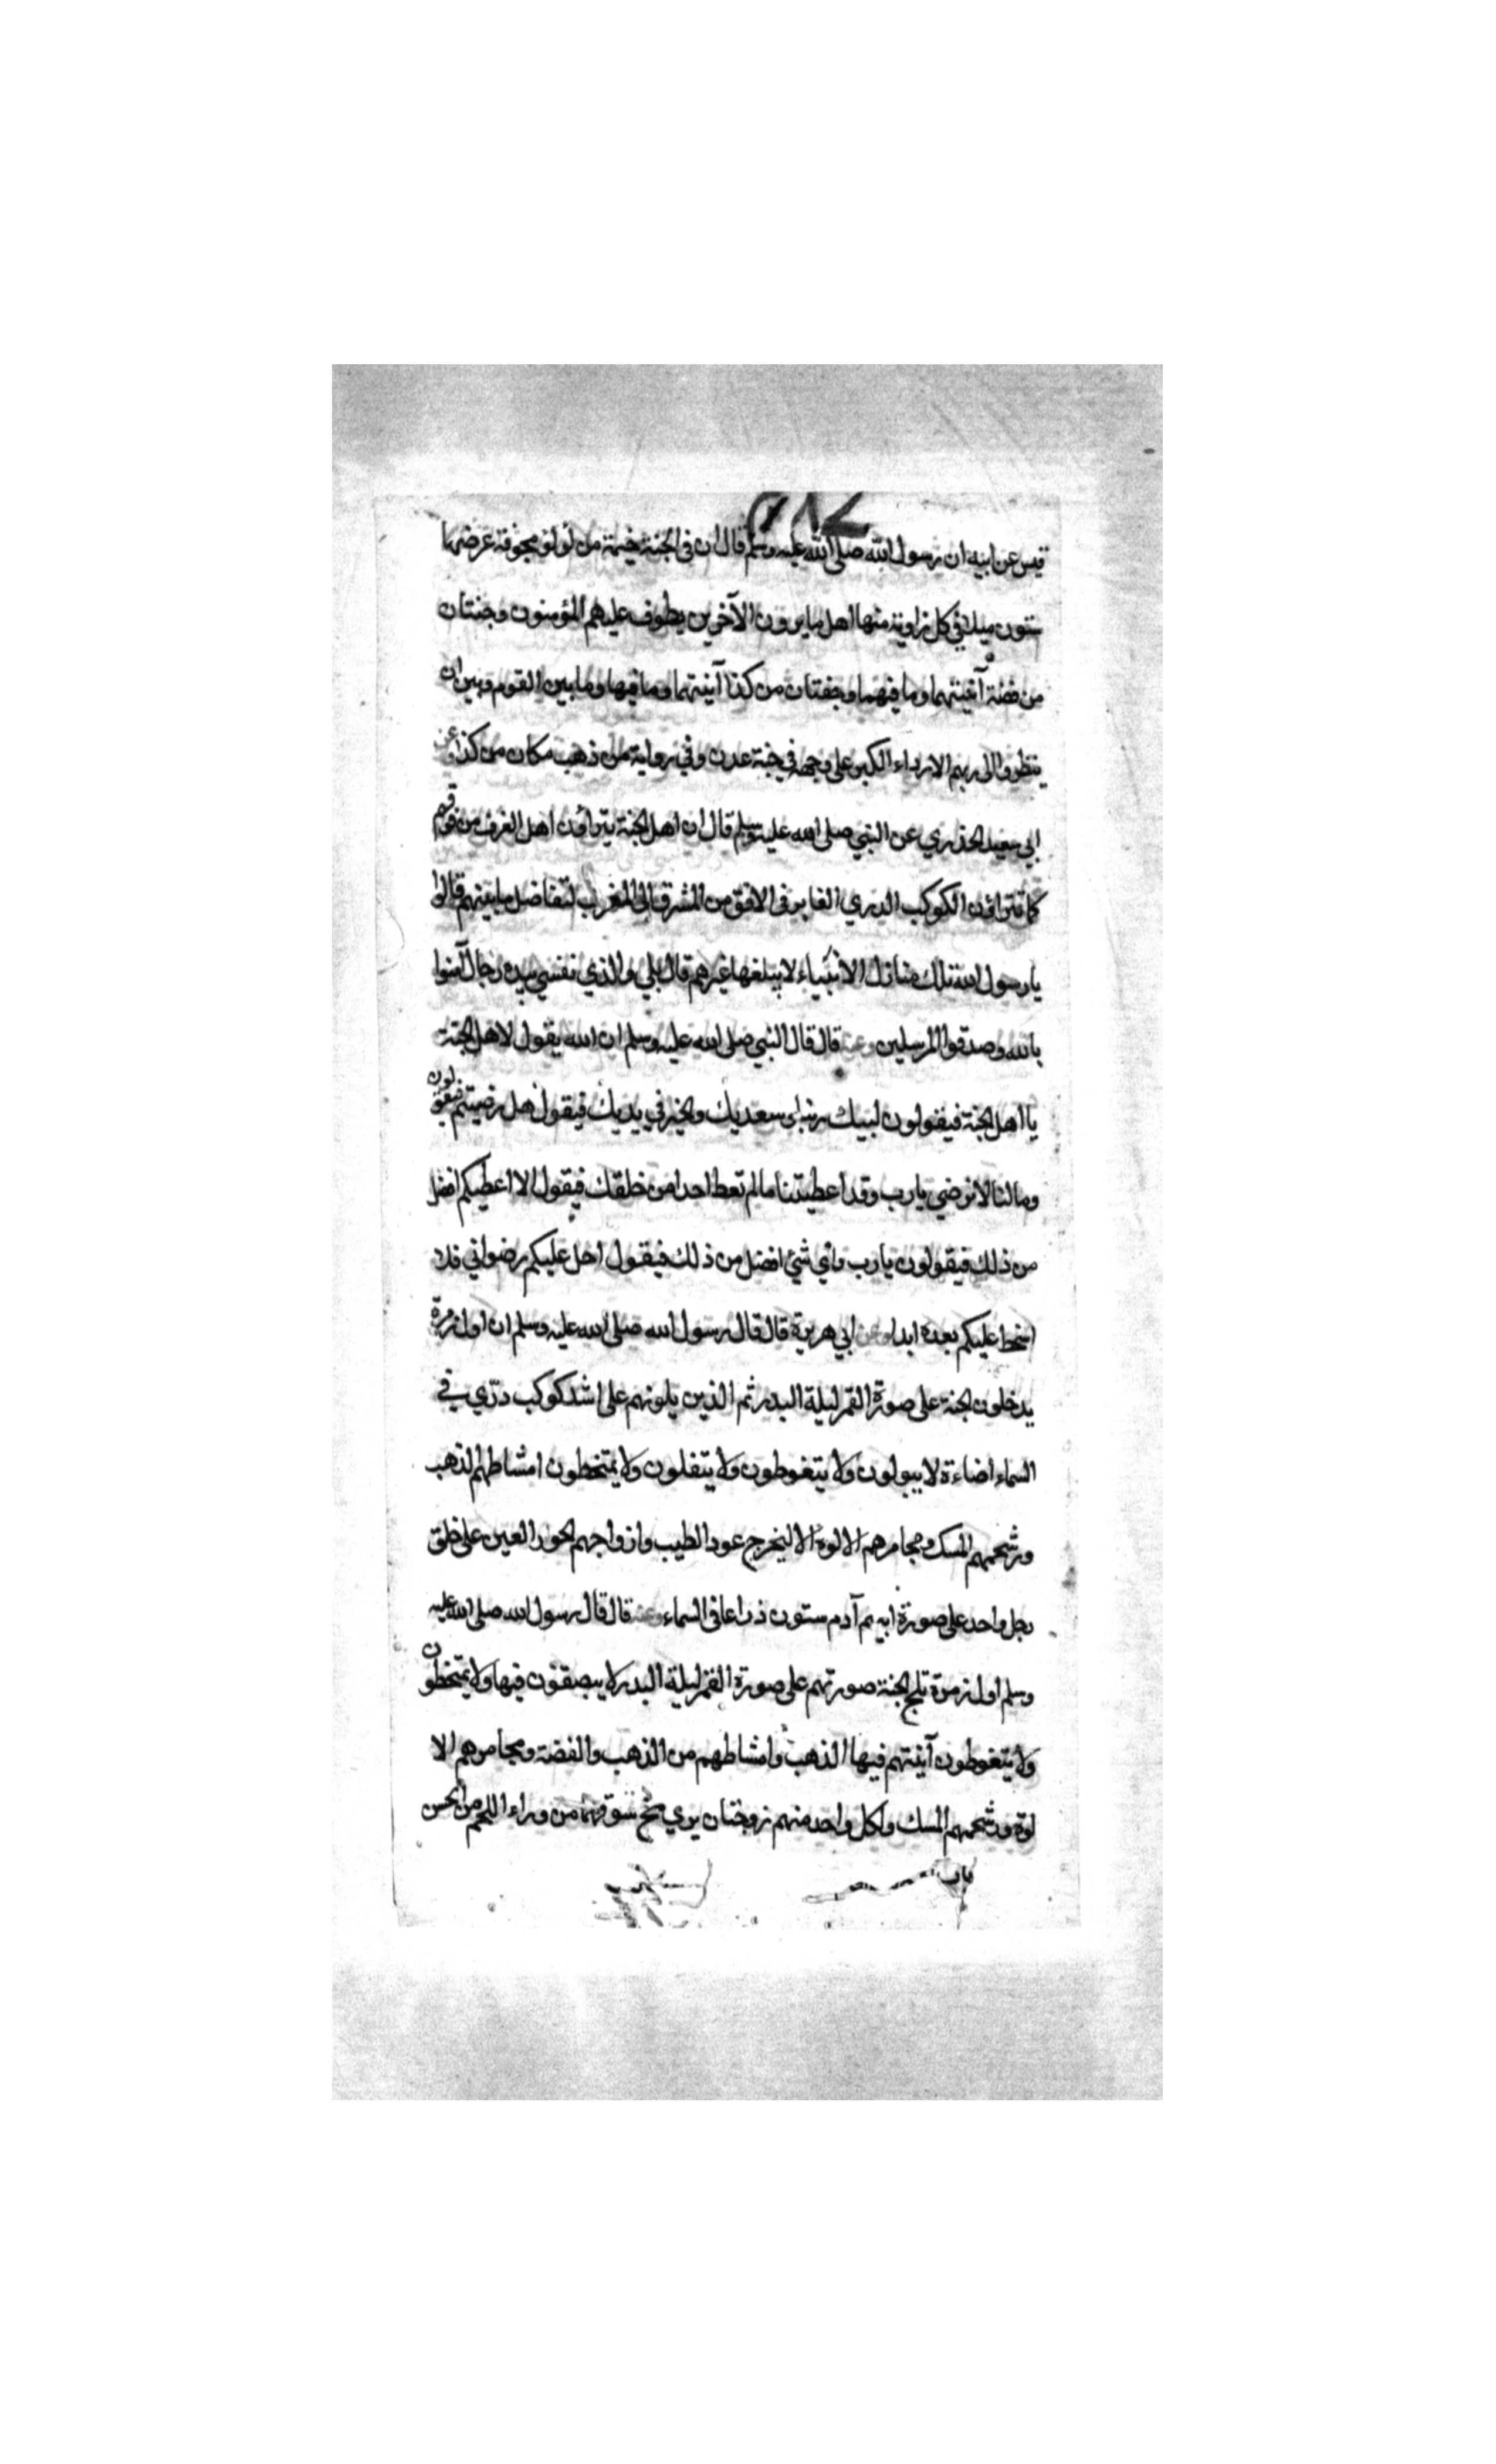 قيس عن ابيه ان رسول الله صلى الله عليه وسلم قال ان في الجنة خيمة من لؤلؤ مجوفة عرضها
ستون ميلا في كل زاوية منها اهل ما يرون الآخرين يطوف عليهم المؤمنون وجنتان
من فضة آنيتهما وما فيهما وجنتان من كذا آنيتهما وما فيها وما بين القوم وبين ان
ينظروا الى ربهم الا رداء الكبر على وجهه في جنة عدن وفي رواية من ذهب مكان من كذا وعن
ابي سعيد الخذري عن النبي صلى الله عليه وسلم قال ان اهل الجنة يتراؤن اهل الغرف من فوقهم
كما تتراؤن الكوكب الدري الغابر في الافق من المشرق الى المغرب لتفاضل ما بينهم قالوا
يا رسول الله تلك منازل الانبياء لا يبلغها غيرهم قال بلي والذي نفسي بيده رجال آمنوا
بالله وصدقوا المرسلين وعنه قال قال النبي صلى الله عليه وسلم ان الله يقول لاهل الجنة
يا اهل الجنة فيقولون لبيك ربنا وسعديك والخير في يديك فيقول هل رضيتم فيقولون
وما لنا لا نرضي يا رب وقد اعطيتنا ما لم تعط احدا من خلقك فيقول الا اعطيكم افضل
من ذلك فيقولون يا رب واي شئ افضل من ذلك فيقول احل عليكم رضواني فلا
اسخط عليكم بعده ابدا وعن ابي هريرة قال قال رسول الله صلى الله عليه وسلم ان اول زمرة
يدخلون الجنة على صورة القمر ليلة البدر ثم الذين يلونهم على اشد كوكب درّي في
السماء اضاءة لا يبولون ولا يتغوطون ولا يتفلون ولا يمتخطون امشاطهم الذهب
ورشحهم المسك ومجامرهم الالوة الاليخرج عود الطيب وازواجهم الحور العين على خلق
رجل واحد على صورة ابيهم آدم ستون ذراعا في السماء وعنه قال قال رسول الله صلى الله عليه
وسلم اول زمرة تلج الجنة صورتهم على صورة القمر ليلة البدر لا يبصقون فيها ولا يمتخطون
ولا يتغوطون آنيتهم فيها الذهب وامشاطهم من الذهب والفضة ومجامرهم الا
لوة ورشحهم المسك ولكل واحد منهم زوجتان يرى مخ سوقهما من وراء اللحم من الحسن